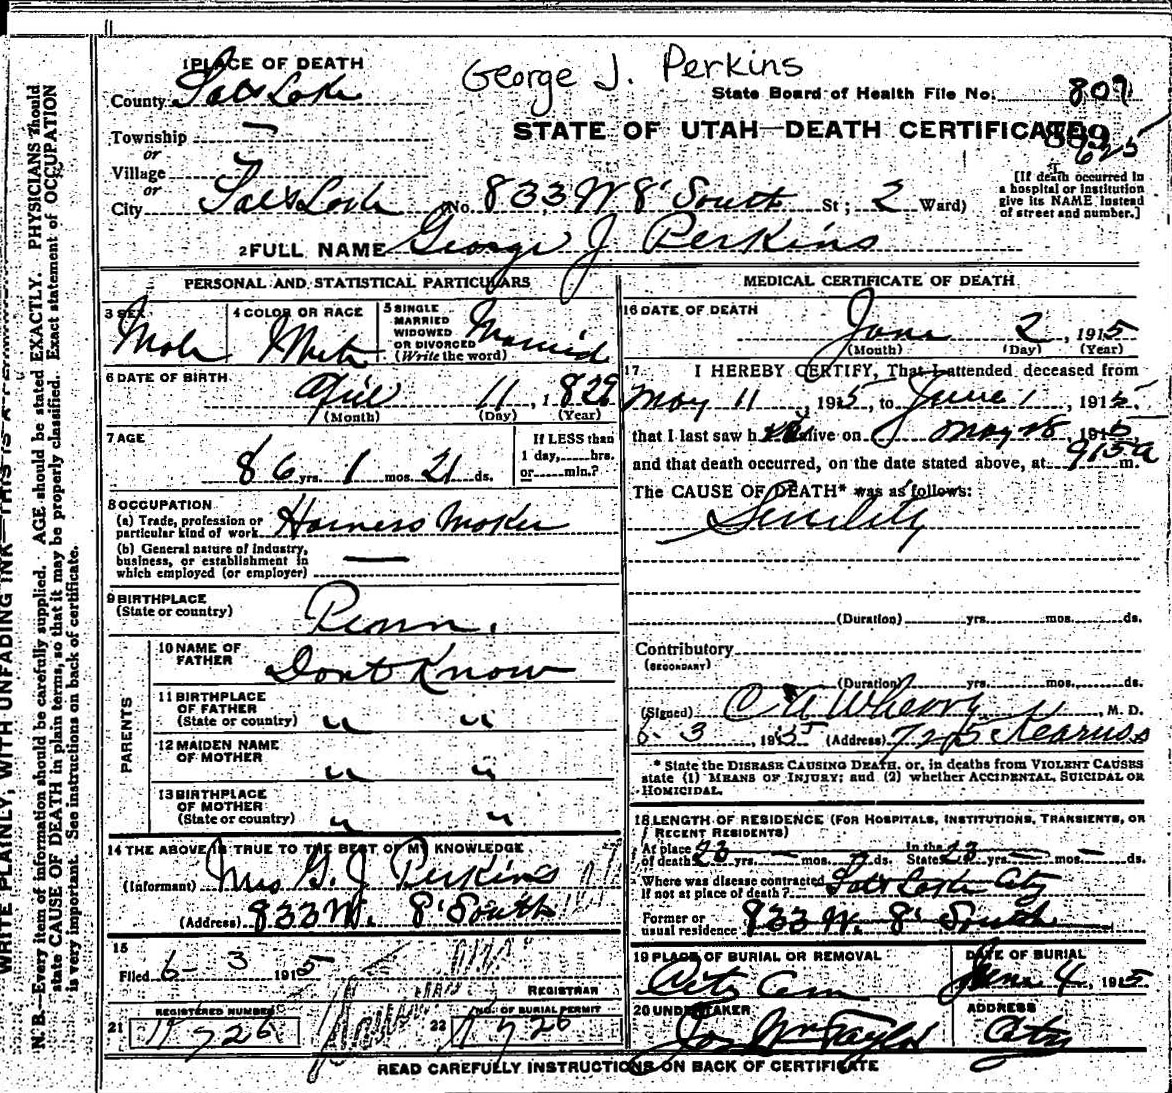 George J. Perkins
1 PLACE OF DEATH
County Salt Lake
State Board of Health File No. 809
Township —
or
STATE OF UTAH—DEATH CERTIFICATE
Village
or
City Salt Lake No. 833 W 8' South St; 2 Ward)
[If death occurred in a hospital or institution give its NAME instead of street and number.]
2 FULL NAME George J Perkins
PERSONAL AND STATISTICAL PARTICULARS
3 SEX Male
4 COLOR OR RACE White
5 SINGLE MARRIED WIDOWED OR DIVORCED (Write the word) Married
6 DATE OF BIRTH
April 11, 1829
(Month) (Day) (Year)
7 AGE
86 yrs. 1 mos. 21 ds.
If LESS than 1 day, hrs. or min.?
8 OCCUPATION
(a) Trade, profession or particular kind of work Harness Maker
(b) General nature of industry, business, or establishment in which employed (or employer) —
9 BIRTHPLACE
(State or country) Penn.
PARENTS
10 NAME OF FATHER Dont Know
11 BIRTHPLACE OF FATHER (State or country) " "
12 MAIDEN NAME OF MOTHER " "
13 BIRTHPLACE OF MOTHER (State or country) " "
14 THE ABOVE IS TRUE TO THE BEST OF MY KNOWLEDGE
(Informant) Mrs G. J Perkins
(Address) 833 W. 8' South
15
Filed 6-3 1915
REGISTRAR
REGISTERED NUMBER
21
NO. OF BURIAL PERMIT
22
MEDICAL CERTIFICATE OF DEATH
16 DATE OF DEATH
June 2, 1915
(Month) (Day) (Year)
17 I HEREBY CERTIFY, That I attended deceased from
May 11, 1915, to June 1, 1915.
that I last saw h alive on May 28 1915
and that death occurred, on the date stated above, at 915a m.
The CAUSE OF DEATH* was as follows:
Senility
(Duration) yrs. mos. ds.
Contributory
(SECONDARY)
(Duration) yrs. mos. ds.
(Signed) M. D.
6-3, 1915 (Address) 725 Kearns
* State the DISEASE CAUSING DEATH, or, in deaths from VIOLENT CAUSES
state (1) MEANS OF INJURY; and (2) whether ACCIDENTAL, SUICIDAL OR
HOMICIDAL.
18 LENGTH OF RESIDENCE (FOR HOSPITALS, INSTITUTIONS, TRANSIENTS, OR
RECENT RESIDENTS)
At place of death 23 yrs. — mos. ds. In the State 23 yrs. — mos. — ds.
Where was disease contracted if not at place of death? Salt Lake City
Former or usual residence 833 W. 8' South
19 PLACE OF BURIAL OR REMOVAL
City Cem
DATE OF BURIAL
June 4, 1915
20 UNDERTAKER
Jos Wm Taylor
ADDRESS
City
READ CAREFULLY INSTRUCTIONS ON BACK OF CERTIFICATE
WRITE PLAINLY, WITH UNFADING INK—THIS IS A
N. B.—Every item of information should be carefully supplied. AGE should be stated EXACTLY. PHYSICIANS should
state CAUSE OF DEATH in plain terms, so that it may be properly classified. Exact statement of OCCUPATION
is very important. See instructions on back of certificate.